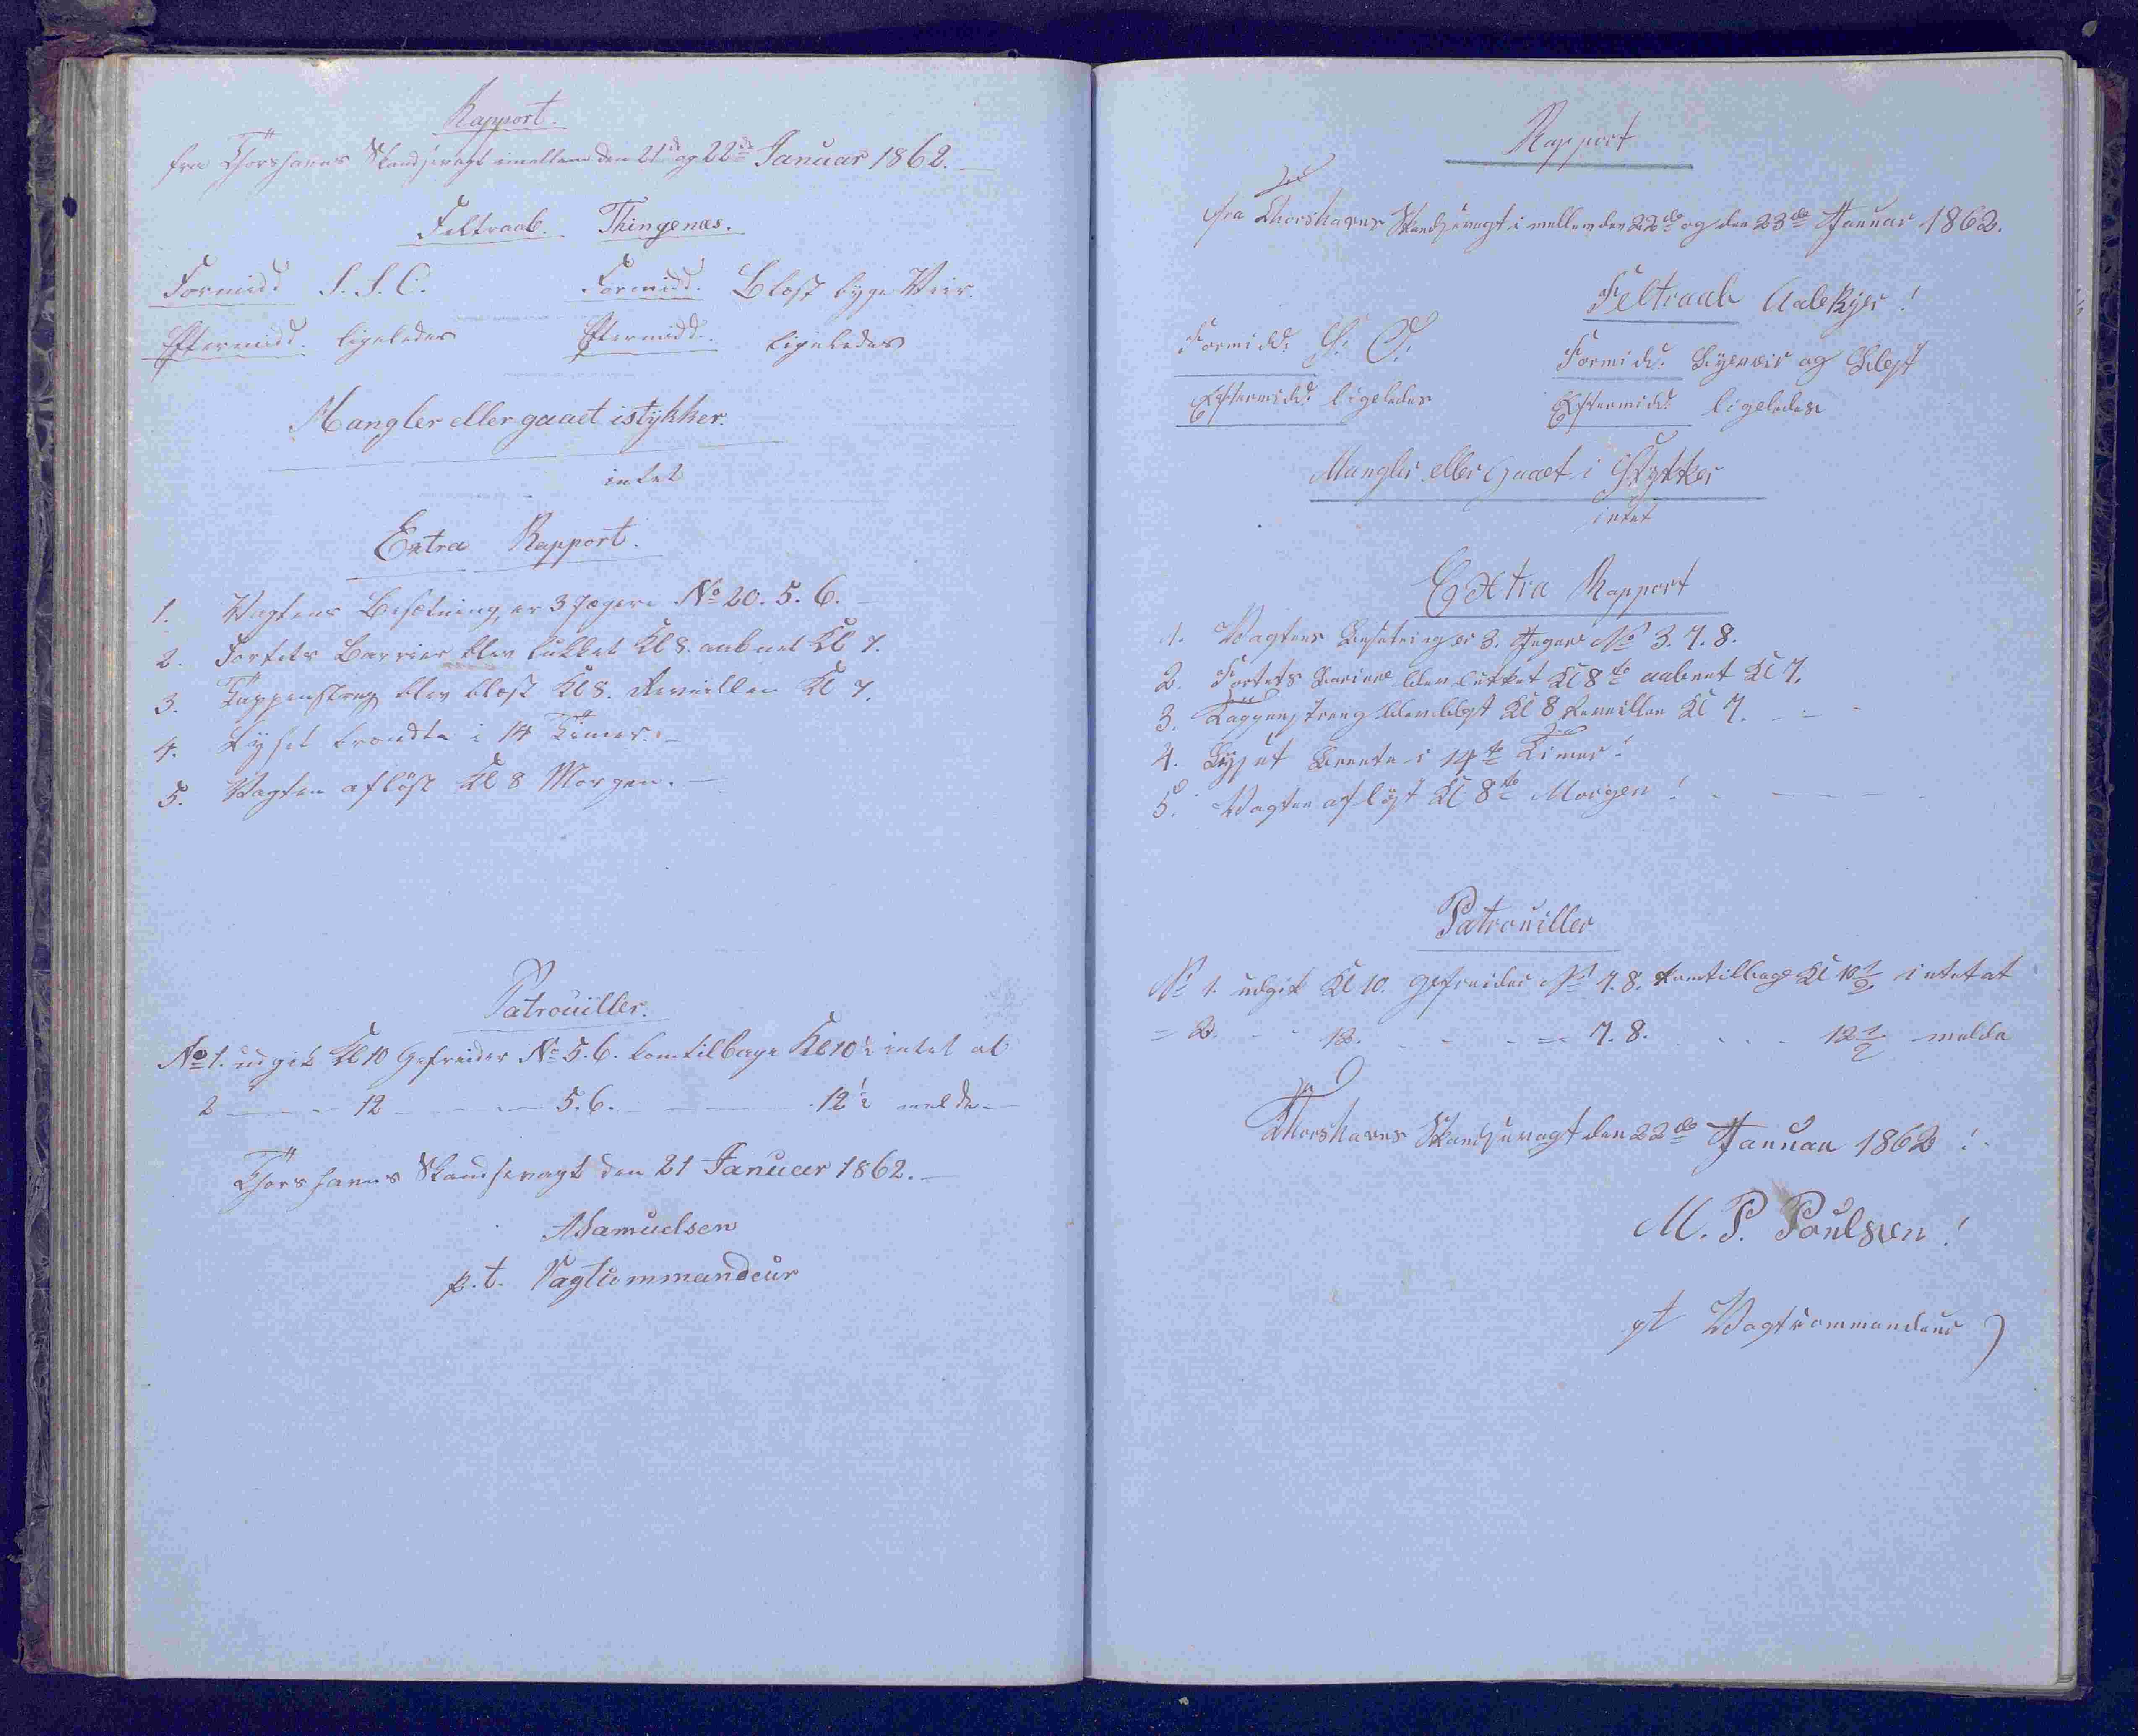 Rapport.
fra Thorshavns Skandsevagt imellem den 21de og 22de Januar 1862.
Feltraab. Thingenæs.
Formidd S. S. O. Formidd. Blæst byge Veir.
Eftermidd. ligeledes Eftermidd. ligeledes
Mangler eller gaaet istykker.
intet
Extra Rapport.
1. Vagtens Besætning er 3 Jægere No 20. 5. 6.
2. Fortets Barrier blev lukket Kl 8. aabnet Kl 7.
3. Tappenstreg blev blæst Kl 8. Reveillen Kl 7.
4. Lyset brændte i 14 Timer.
5. Vagten aflöst Kl 8 Morgen.
Patrouiller.
No 1. udgik Kl 10 Gefreider No 5. 6. kom tilbage Kl 10 1/2 intet at
2 — 12 — 5. 6. — 12 1/2 melde.
Thorshavns Skandsevagt den 21 Januar 1862.
Samuelsen
p. t. Vagtcommandeur
Rapport
fra Thorshavns Skandsevagt i mellem den 22de og den 23de Januar 1862.
Feltraab Aabekyer!
Formidd: S: O: Formidd: Bygeveir og Blæst
Eftermidd: ligeledes Eftermidd: ligeledes
Mangler eller Gaaet i Stykker
intet
Extra Rapport
1. Vagtens Besætning er 3. Jegere No 3. 7. 8.
2. Fortets Bariere blev lukket Kl 8te aabnet Kl 7.
3. Tappenstreng blev blæst Kl 8 Reveillen Kl 7.
4. Lyset brente i 14te Timer!
5. Vagten afløst Kl 8te Morgen!
Patrouiller
No 1. udgik Kl 10. gefreider No 7. 8. kom tilbage Kl 10 1/2 intet at
= 2. - - 12. - - - = 7. 8. - - - 12 1/2 melde
Thorshavns Skandsevagt den 22de Januar 1862!
M. P. Poulsen!
pt Vagtcommandeur